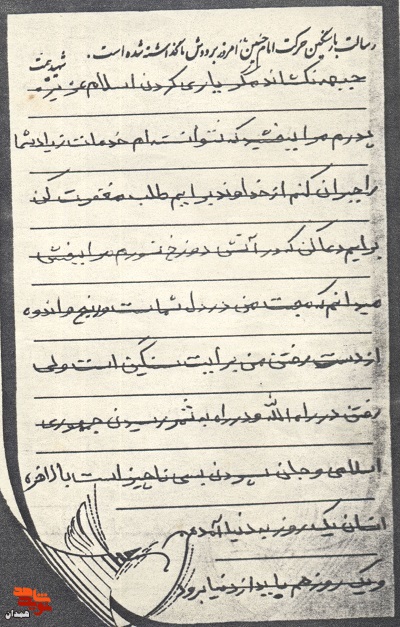 رسالت بازنگهداشتن حرکت امام حسین(ع) امروز بر دوش ما گذاشته شده است.
شهید بهشتی
جبهه نکشانده مگر یاری کردن اسلام عزیز،
پدرم مرا ببخشید که نتوانسته‌ام خدمات زیاد شما
را جبران کنم از خداوند برایم طلب مغفرت کن
برایم دعا کن که در آتش دوزخ نسوزم مرا ببخش
میدانم که محبت من در دل شماست و رنج و اندوه
از دست رفتن من برایت سنگین است ولی
رفتن در راه الله و در راه به ثمر رسیدن جمهوری
اسلامی و جان سپردن بسی ناچیز است بالاخره
انسان یک روز به دنیا آمده
و یک روز هم باید از دنیا برود
شاهد
نوید
همدان